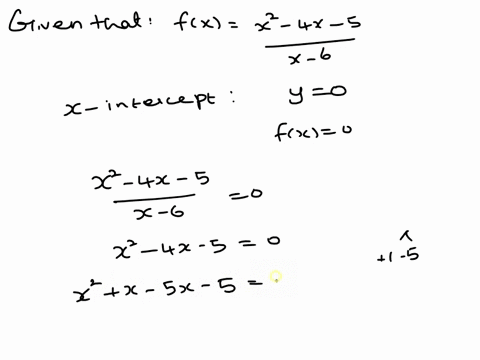 Given that: f(x) = x² - 4x - 5
x - 6
x-intercept: y = 0
f(x) = 0
x² - 4x - 5
x - 6
= 0
x² - 4x - 5 = 0
+1 -5
x² + x - 5x - 5 =